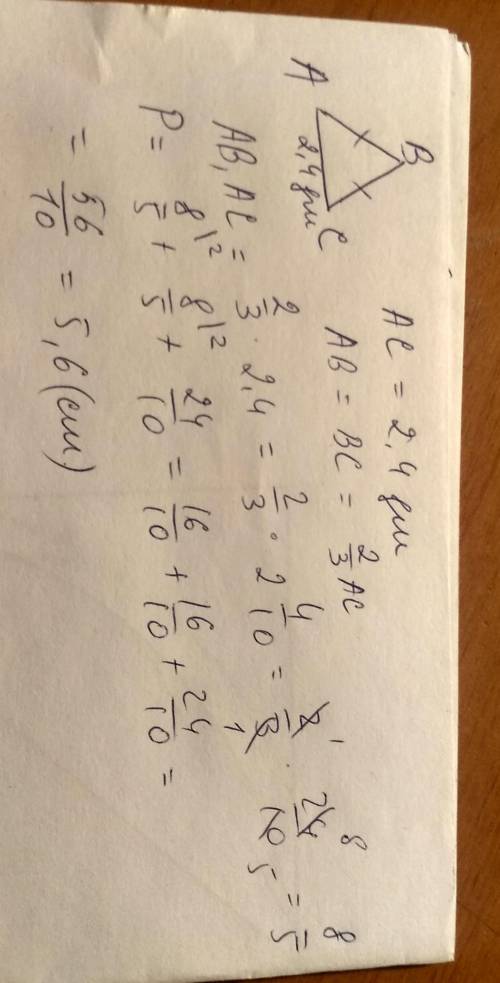 B
A
C
2,4 дм
AC = 2,4 дм
AB = BC = 2/3 AC
AB, AC = 2/3 · 2,4 = 2/3 · 2 4/10 = 2/3 1 1 · 24/10 8 5 = 8/5
P = 8/5 |2 + 8/5 |2 + 24/10 = 16/10 + 16/10 + 24/10 =
= 56/10 = 5,6 (см)